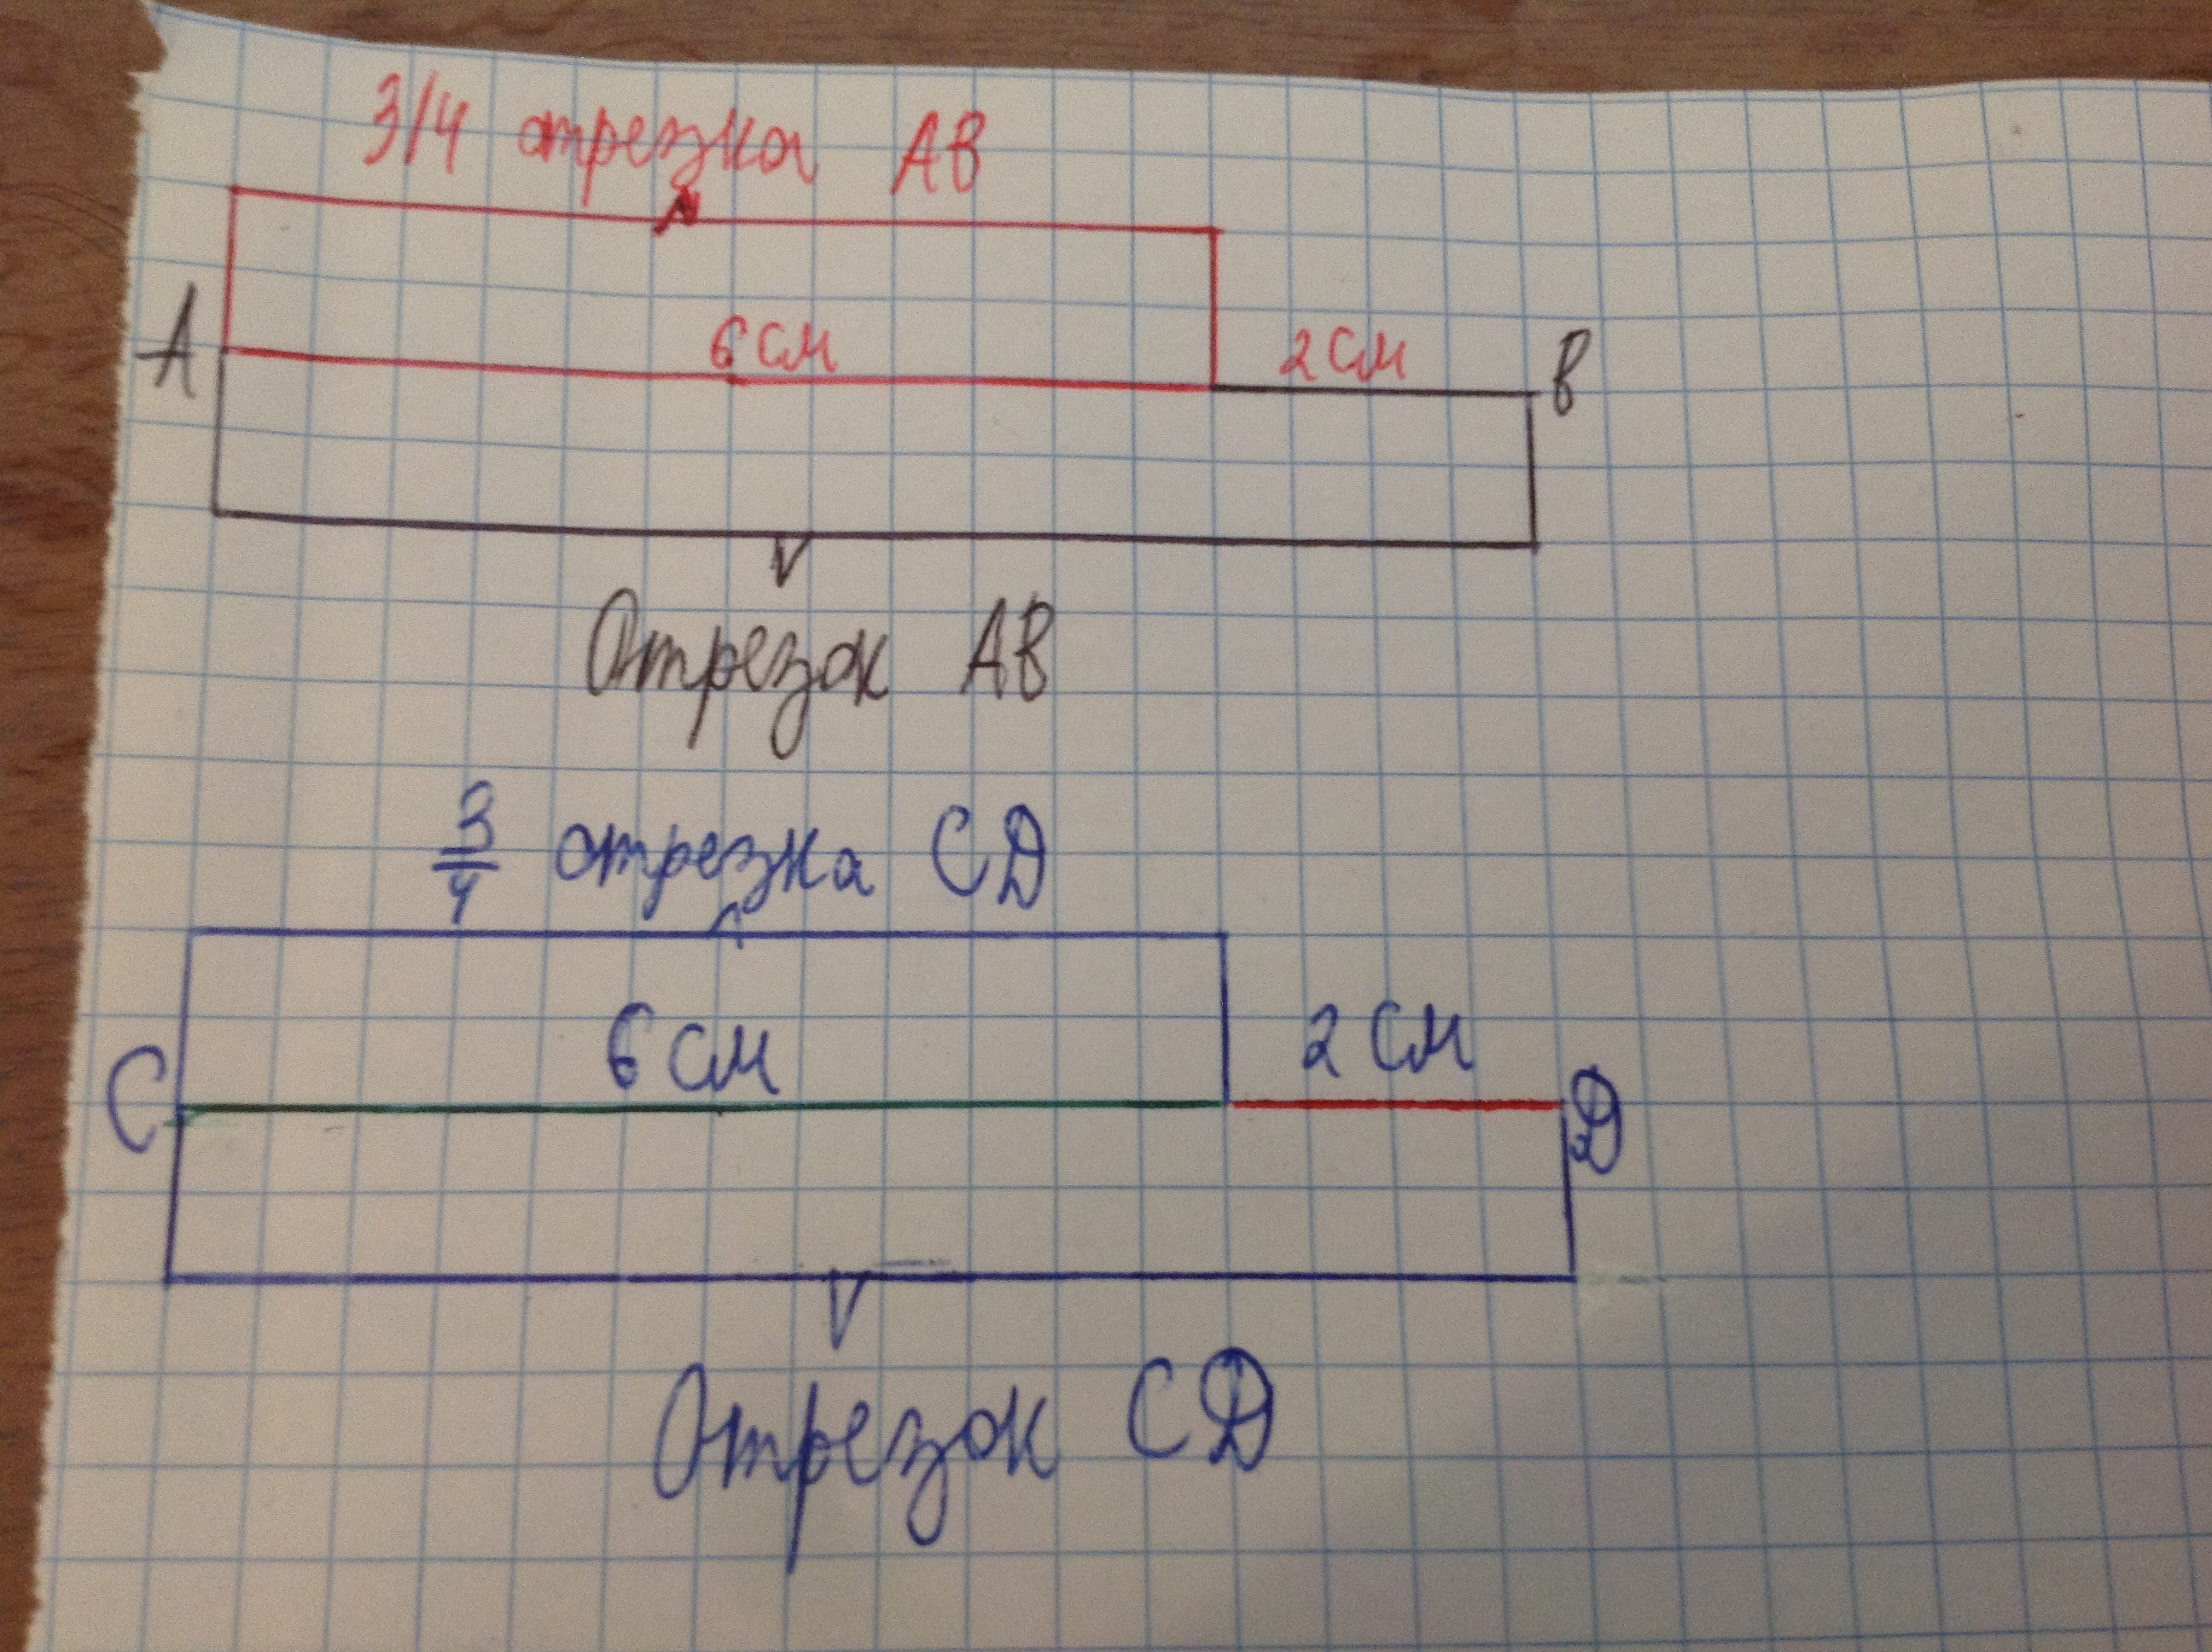 3/4 отрезка АВ
А 6 см 2 см В
Отрезок АВ
3/4 отрезка СД
С 6 см 2 см Д
Отрезок СД